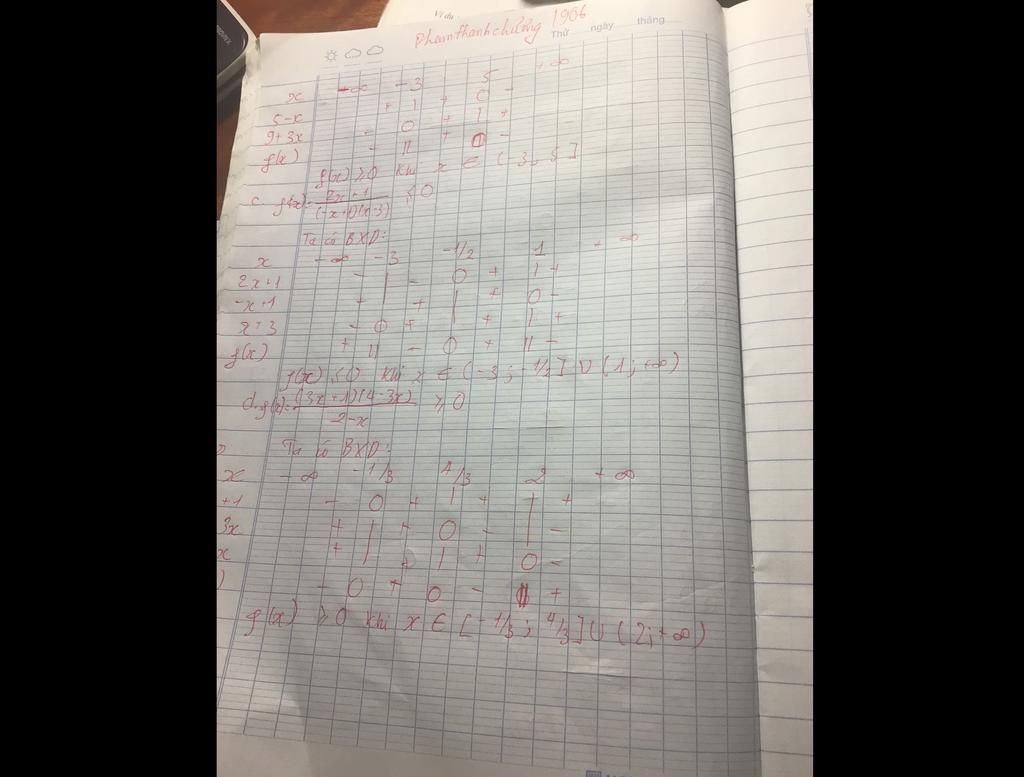 Ví dụ:
Phạm thanh chường 1906
Thứ ngày tháng
x -∞ -3 5 +∞
5-x + | + 0 -
9+3x - 0 + | +
f(x) - || + 0 -
f(x) ≥ 0 khi x ∈ (-3; 5]
c. f(x) = 2x+1 / (-x+1)(x-3) ≤ 0
Ta có BXD:
x -∞ -3 -1/2 1 +∞
2x+1 - | - 0 + | +
-x+1 + | + | + 0 -
x+3 - 0 + | + | +
f(x) + || - 0 + || -
f(x) ≤ 0 khi x ∈ (-3; -1/2] ∪ (1; +∞)
d. f(x) = (3x+1)(4-3x) / 2-x ≥ 0
Ta có BXD:
x -∞ -1/3 4/3 2 +∞
+1 - 0 + | + | +
3x + | + 0 - | -
x + | + | + 0 -
) - 0 + 0 - || +
f(x) ≥ 0 khi x ∈ [-1/3; 4/3] ∪ (2; +∞)